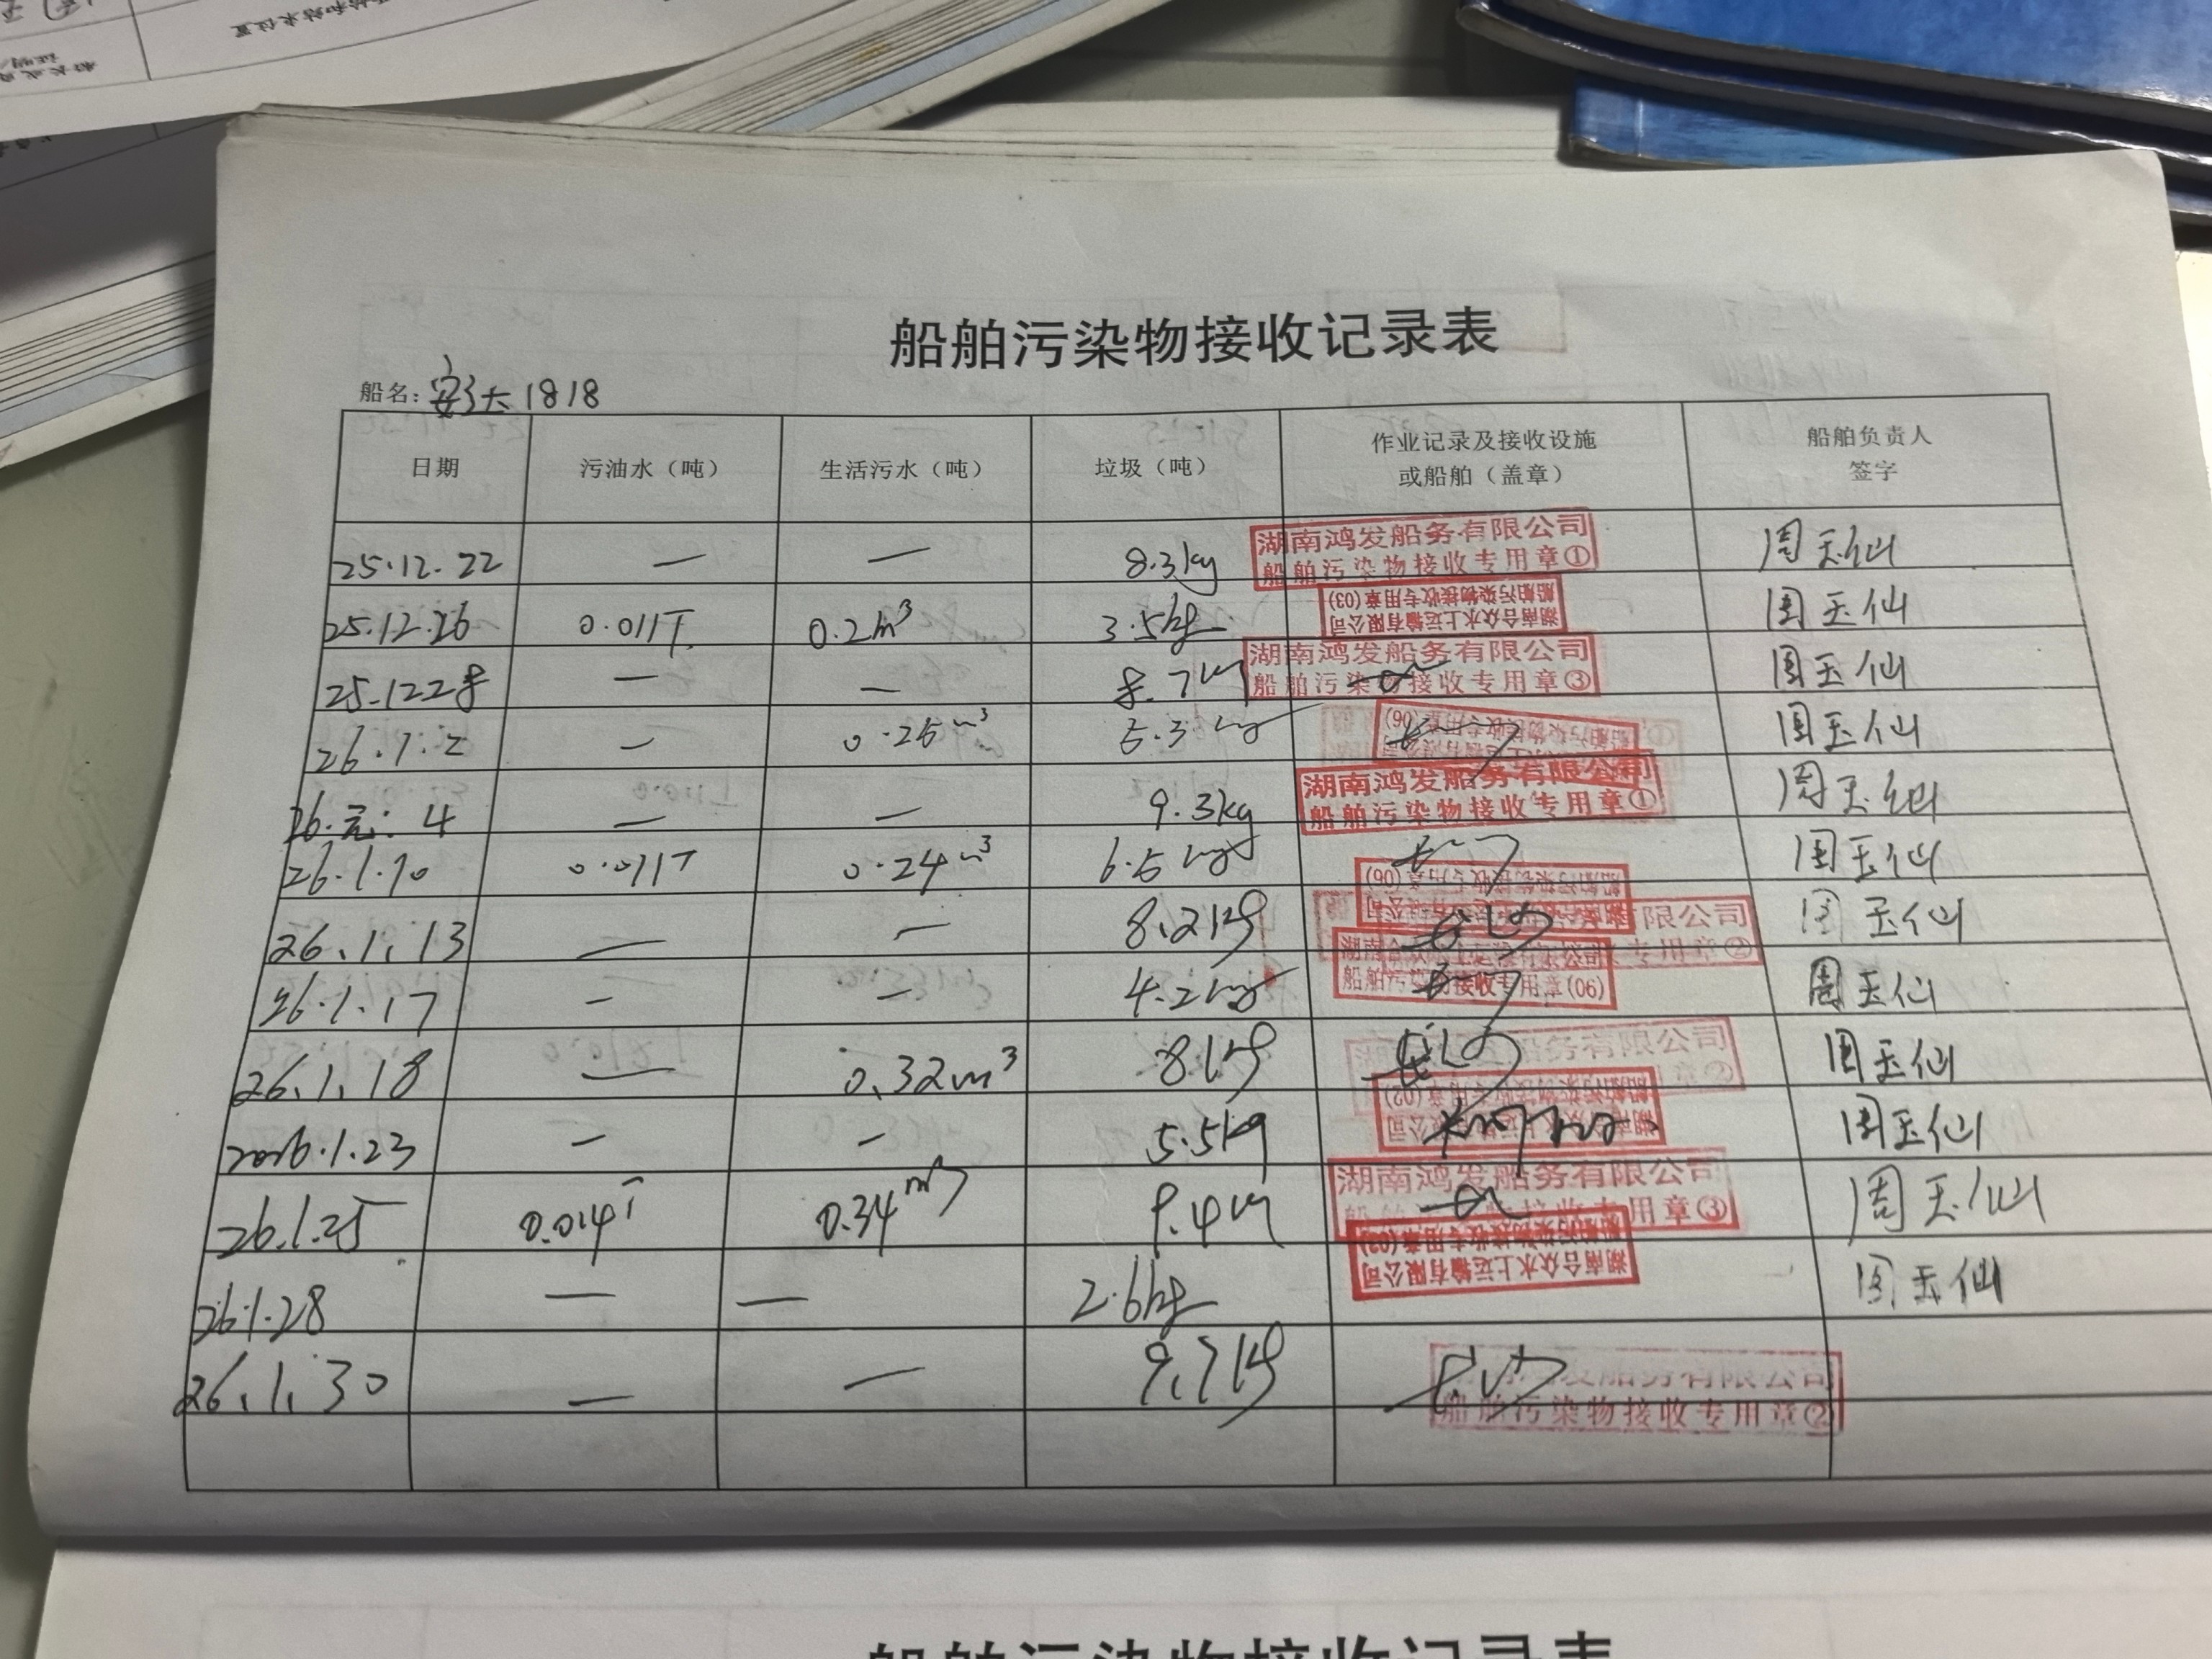 船舶污染物接收记录表
船名: 1818
日期 污油水（吨） 生活污水（吨） 垃圾（吨） 作业记录及接收设施或船舶（盖章） 船舶负责人签字
25.12.22 — — 8.3kg 湖南鸿发船务有限公司 船舶污染物接收专用章① 周玉仙
25.12.26 0.011T 0.2m³ 3.5kg 湖南合众水上运输有限公司 船舶污染物接收专用章(03) 周玉仙
25.12 28 — — 8.7kg 湖南鸿发船务有限公司 船舶污染物接收专用章③ 周玉仙
26.1.2 — 0.25m³ 5.3kg 船舶污染物接收专用章(06) 周玉仙
26.元.4 — — 9.3kg 湖南鸿发船务有限公司 船舶污染物接收专用章① 周玉仙
26.1.10 0.011T 0.24m³ 6.5kg (06) 周玉仙
26.1.13 — — 8.2kg 有限公司 专用章② 周玉仙
26.1.17 — — 4.2kg 船舶污染物接收专用章(06) 周玉仙
26.1.18 — 0.32m³ 8.1kg 船务有限公司 周玉仙
2026.1.23 — — 5.5kg 船舶污染物接收专用章(02) 周玉仙
26.1.25 0.014T 0.34m³ 9.4kg 湖南鸿发船务有限公司 接收专用章③ 周玉仙
26.1.28 — — 2.6kg 湖南合众水上运输有限公司 船舶污染物接收专用章(03) 周玉仙
26.1.30 — — 9.7kg 发船务有限公司 船舶污染物接收专用章②
船舶污染物接收记录表